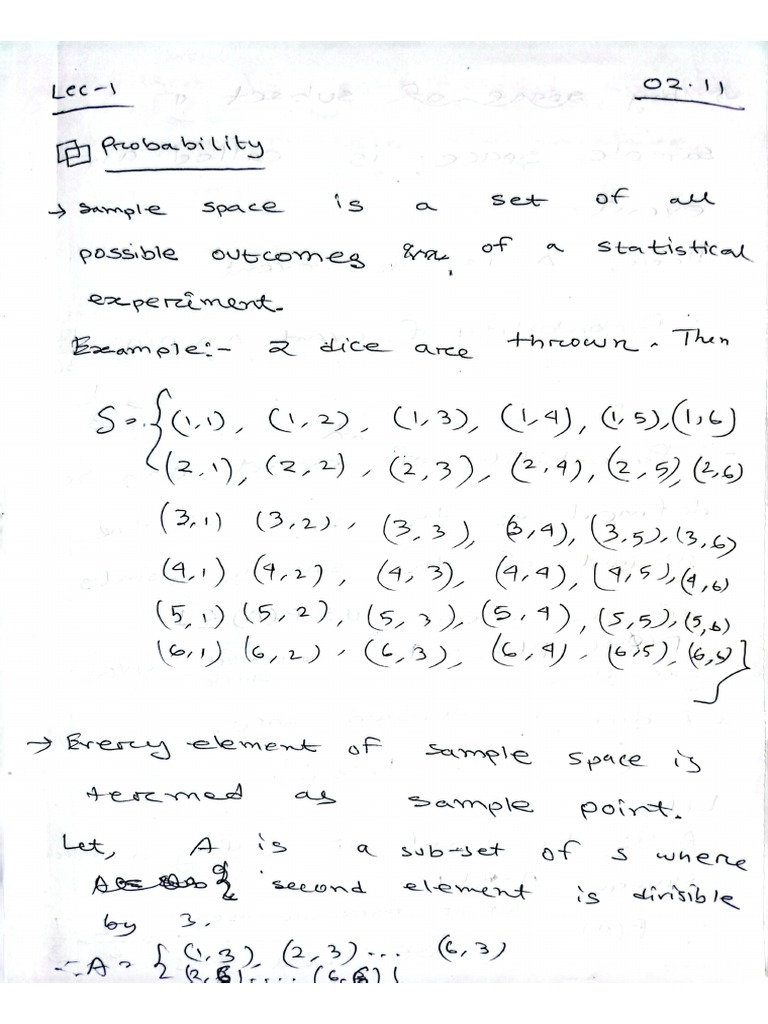 Lec-1 02.11
Probability
→ Sample space is a set of all
possible outcomes of a statistical
experiment.
Example:- 2 dice are thrown. Then
S = {(1,1), (1,2), (1,3), (1,4), (1,5), (1,6)
(2,1), (2,2), (2,3), (2,4), (2,5), (2,6)
(3,1) (3,2), (3,3), (3,4), (3,5), (3,6)
(4,1) (4,2), (4,3), (4,4), (4,5), (4,6)
(5,1) (5,2), (5,3), (5,4), (5,5), (5,6)
(6,1) (6,2), (6,3), (6,4), (6,5), (6,6)}
→ Every element of sample space is
termed as sample point.
Let, A is a sub-set of S where
second element is divisible
by 3.
∴ A = { (1,3), (2,3)... (6,3)
.... (6,6)}